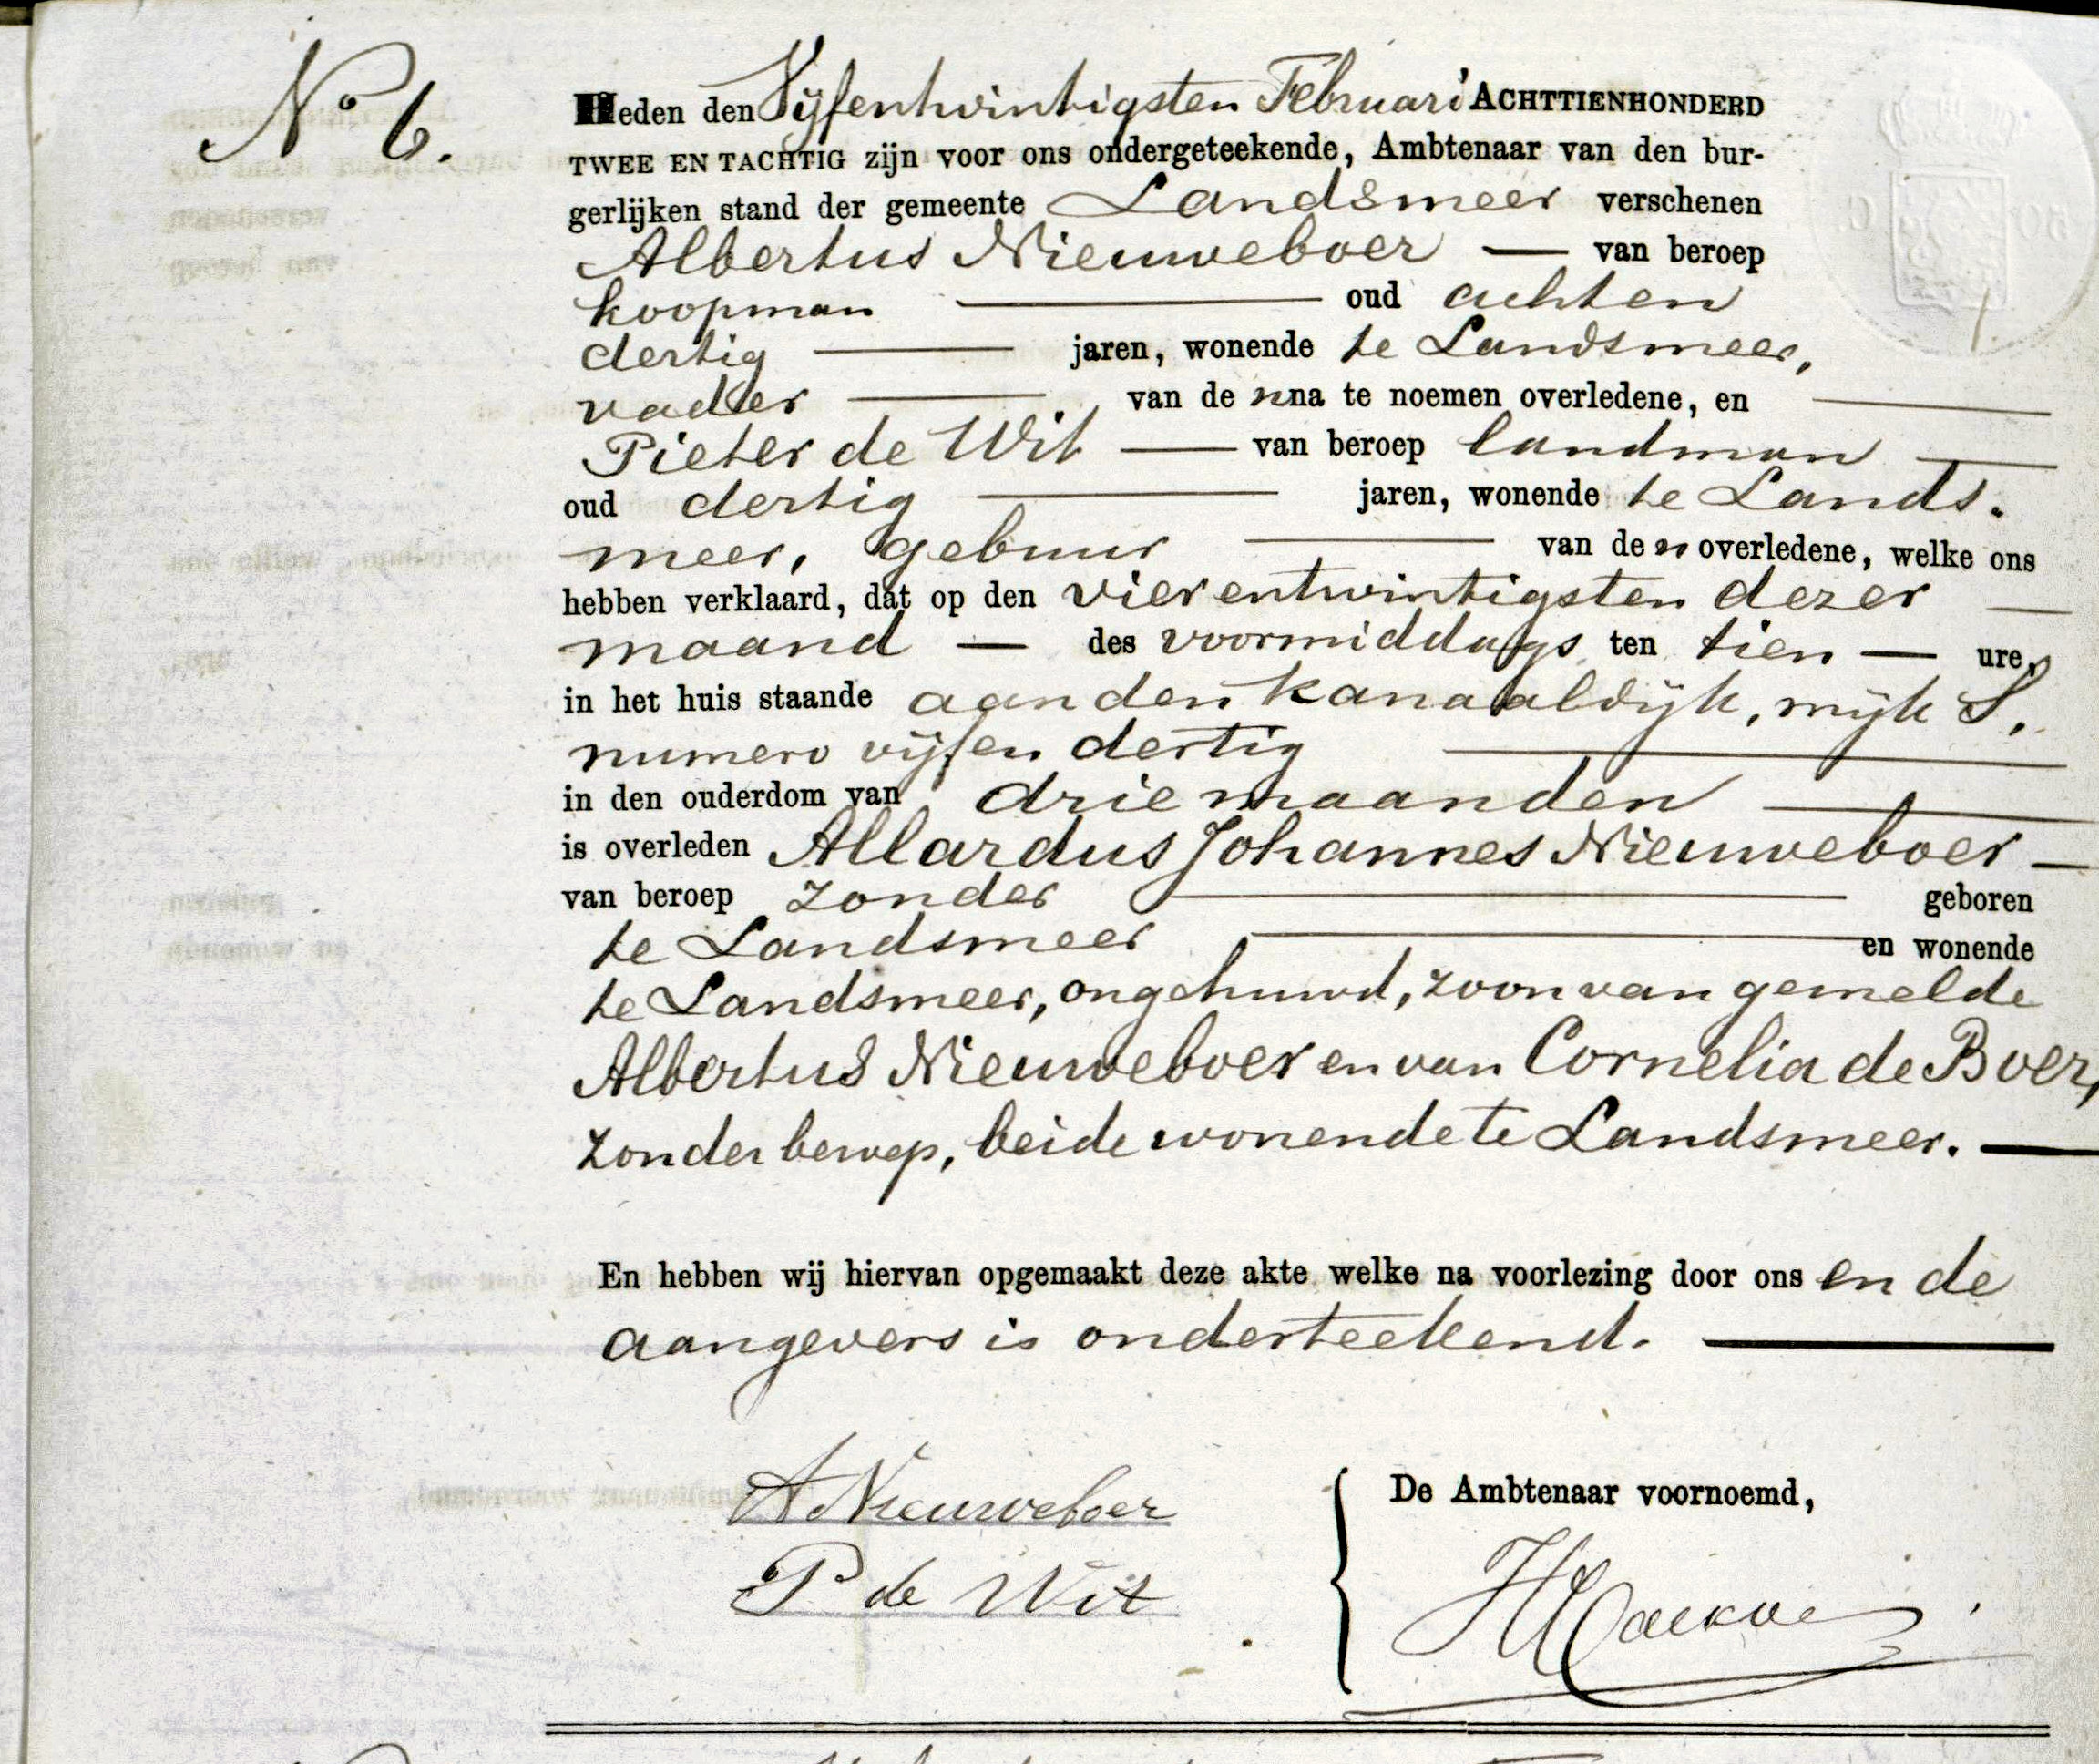 No 6.
Heden den Vijfentwintigsten Februari ACHTTIENHONDERD
TWEE EN TACHTIG zijn voor ons ondergeteekende, Ambtenaar van den bur-
gerlijken stand der gemeente Landsmeer verschenen
Albertus Nieuweboer — van beroep
koopman — oud achten
dertig — jaren, wonende te Landsmeer,
vader — van de n na te noemen overledene, en —
Pieter de Wit — van beroep landman —
oud dertig — jaren, wonende te Lands.
meer, gebuur — van de n overledene, welke ons
hebben verklaard, dat op den vierentwintigsten dezer —
maand — des voormiddags ten tien — ure,
in het huis staande aan den kanaaldijk, wijk S,
numero vijfendertig —
in den ouderdom van drie maanden —
is overleden Allardus Johannes Nieuweboer —
van beroep zonder — geboren
te Landsmeer — en wonende
te Landsmeer, ongehuwd, zoon van gemelde
Albertus Nieuweboer en van Cornelia de Boer,
zonder beroep, beide wonende te Landsmeer. —
En hebben wij hiervan opgemaakt deze akte welke na voorlezing door ons en de
aangevers is onderteekend. —
A Nieuweboer
De Ambtenaar voornoemd,
P de Wit